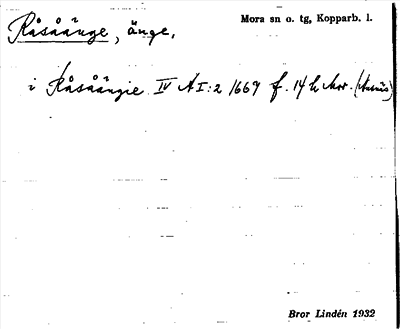 Råsåänge, änge.
Mora sn o. tg, Kopparb. l.
i Råsåängie IV A I:2 1669 f. 14 h Mor.
Bror Lindén 1932